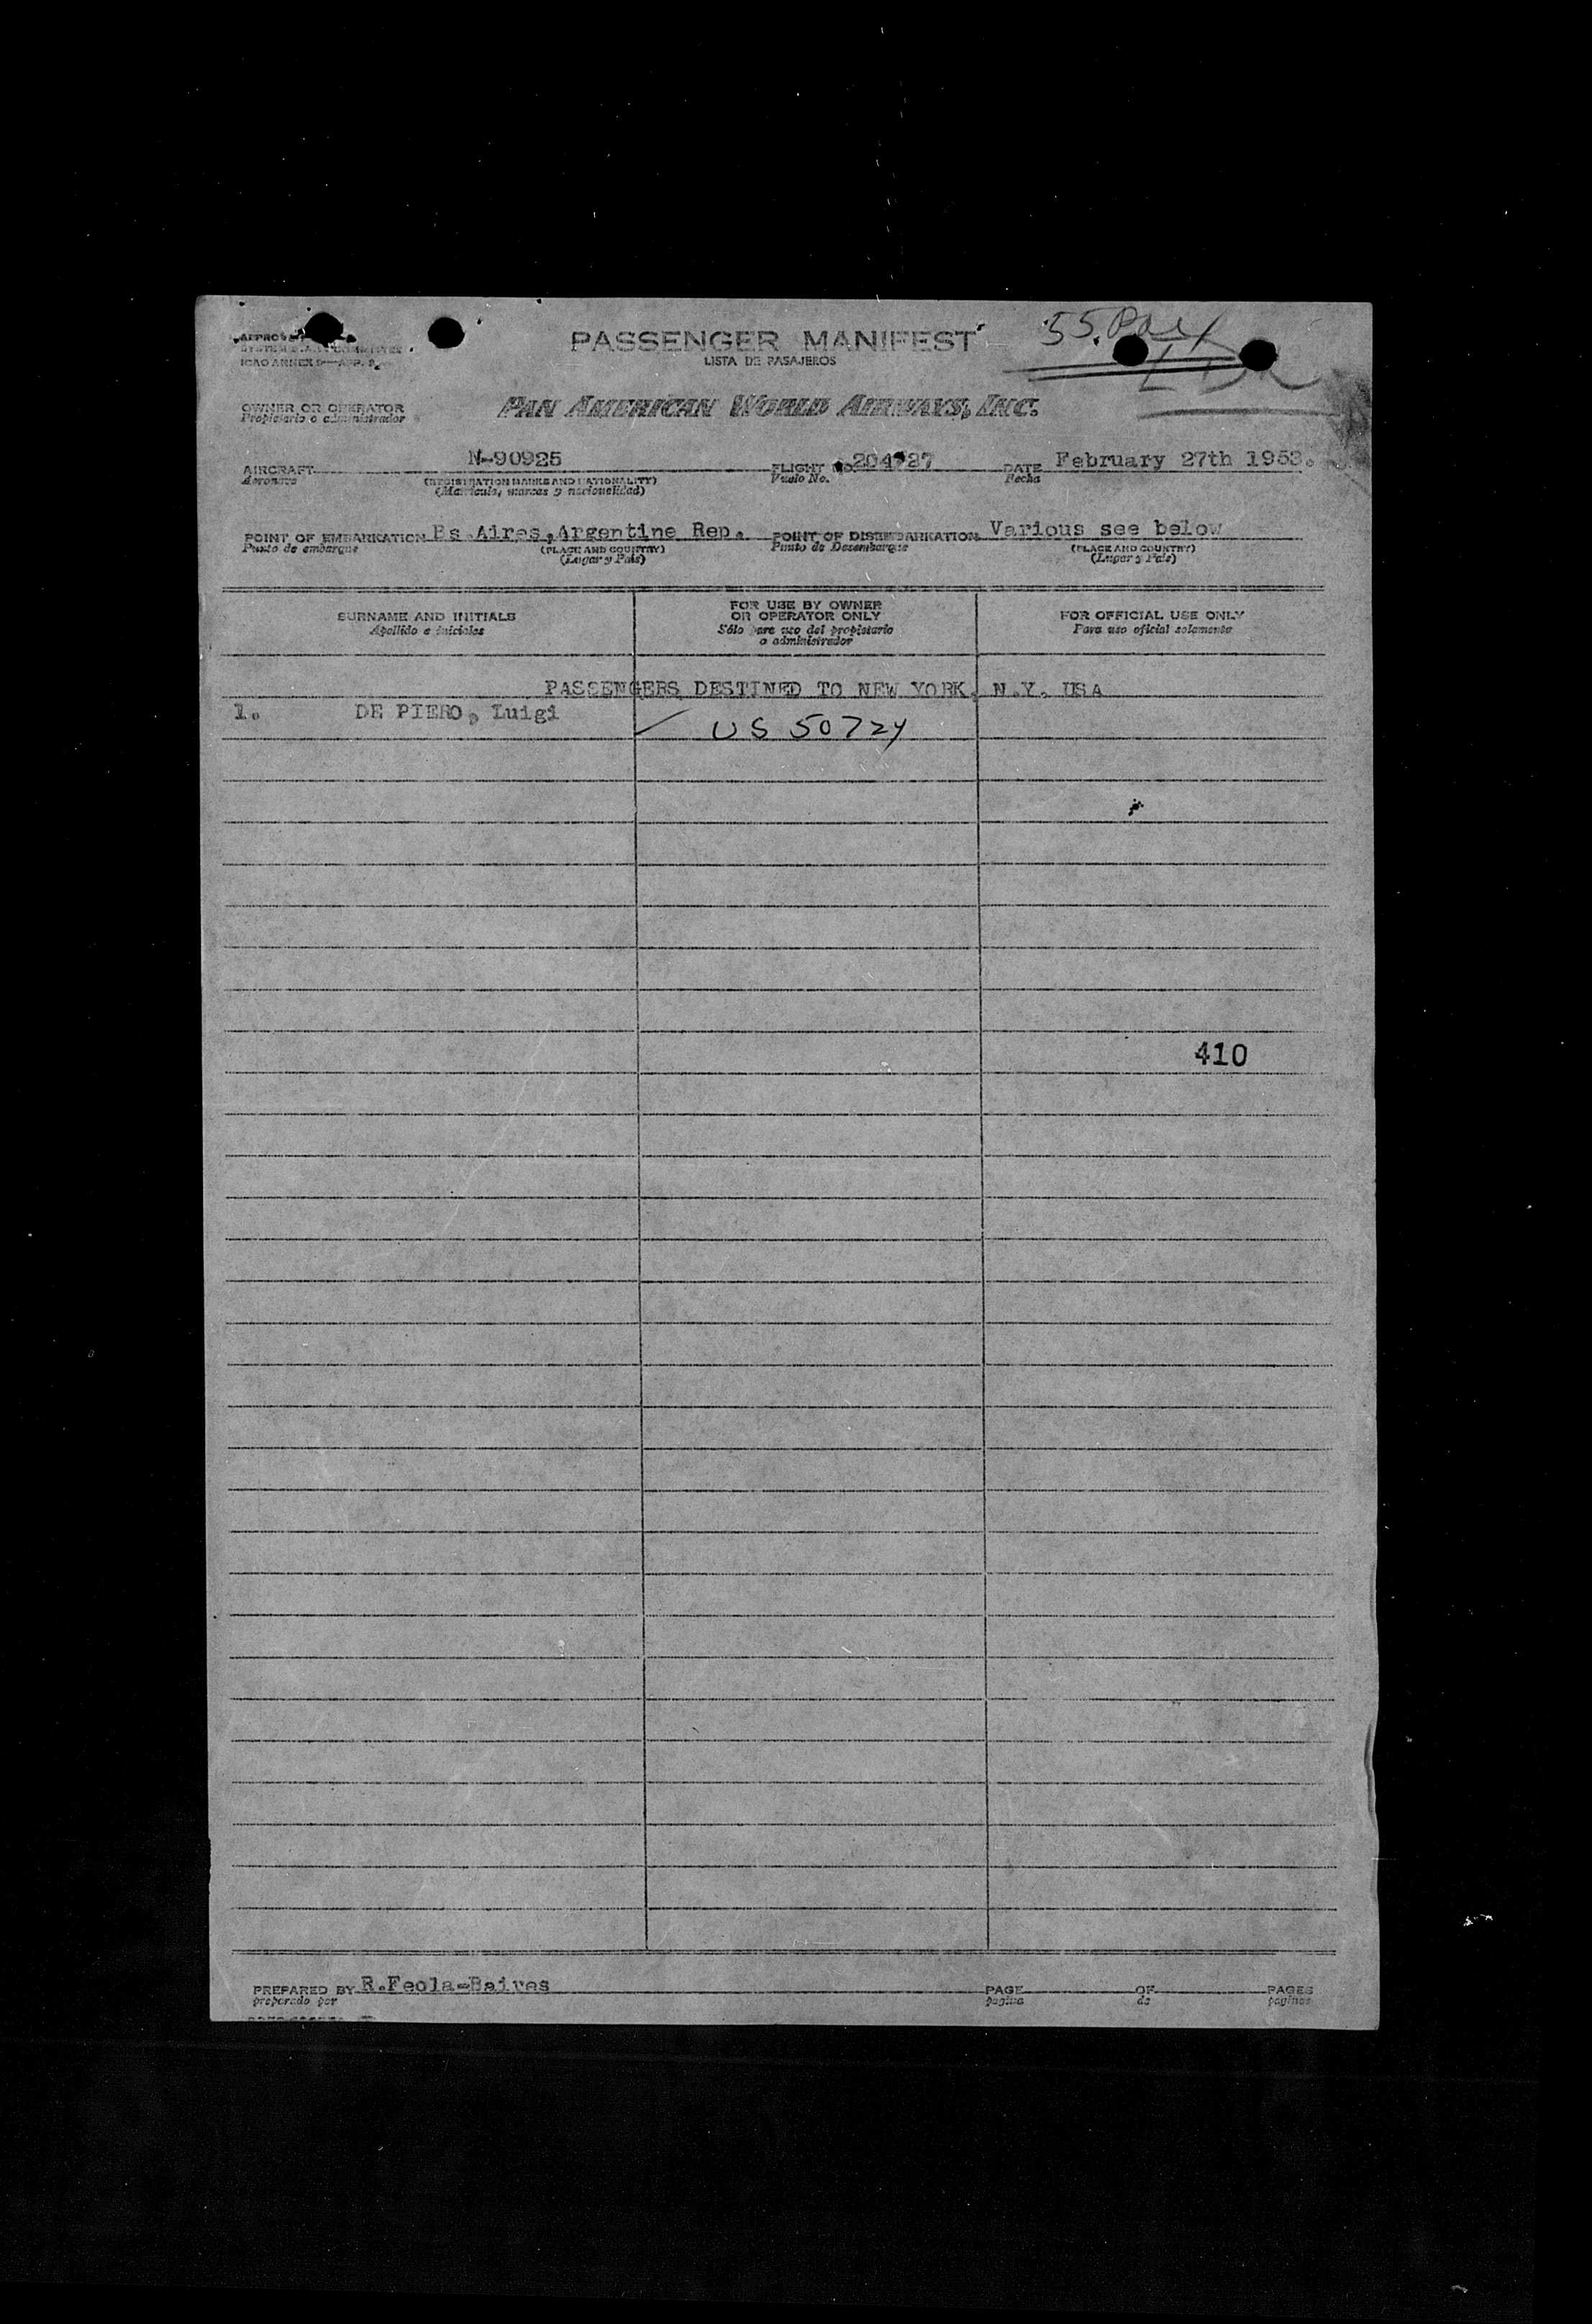 PASSENGER MANIFEST
LISTA DE PASAJEROS
55 Pax
ICAO ANNEX 9—APP. 2
OWNER OR OPERATOR
Propietario o administrador
PAN AMERICAN WORLD AIRWAYS, INC.
AIRCRAFT N-90925 FLIGHT No. DATE February 27th 1953.
Aeronave (REGISTRATION MARKS AND NATIONALITY) Vuelo No. Fecha
(Matrícula, marcas y nacionalidad)
POINT OF EMBARKATION Bs.Aires,Argentine Rep. POINT OF DISEMBARKATION Various see below
Punto de embarque (PLACE AND COUNTRY) Punto de Desembarque (PLACE AND COUNTRY)
(Lugar y País) (Lugar y País)
SURNAME AND INITIALS
Apellido e iniciales
FOR USE BY OWNER
OR OPERATOR ONLY
Sólo para uso del propietario
o administrador
FOR OFFICIAL USE ONLY
Para uso oficial solamente
PASSENGERS DESTINED TO NEW YORK, N.Y. USA
1. DE PIERO, Luigi US 50724
410
PREPARED BY R.Feola-Baires PAGE OF PAGES
preparado por pagina de paginas